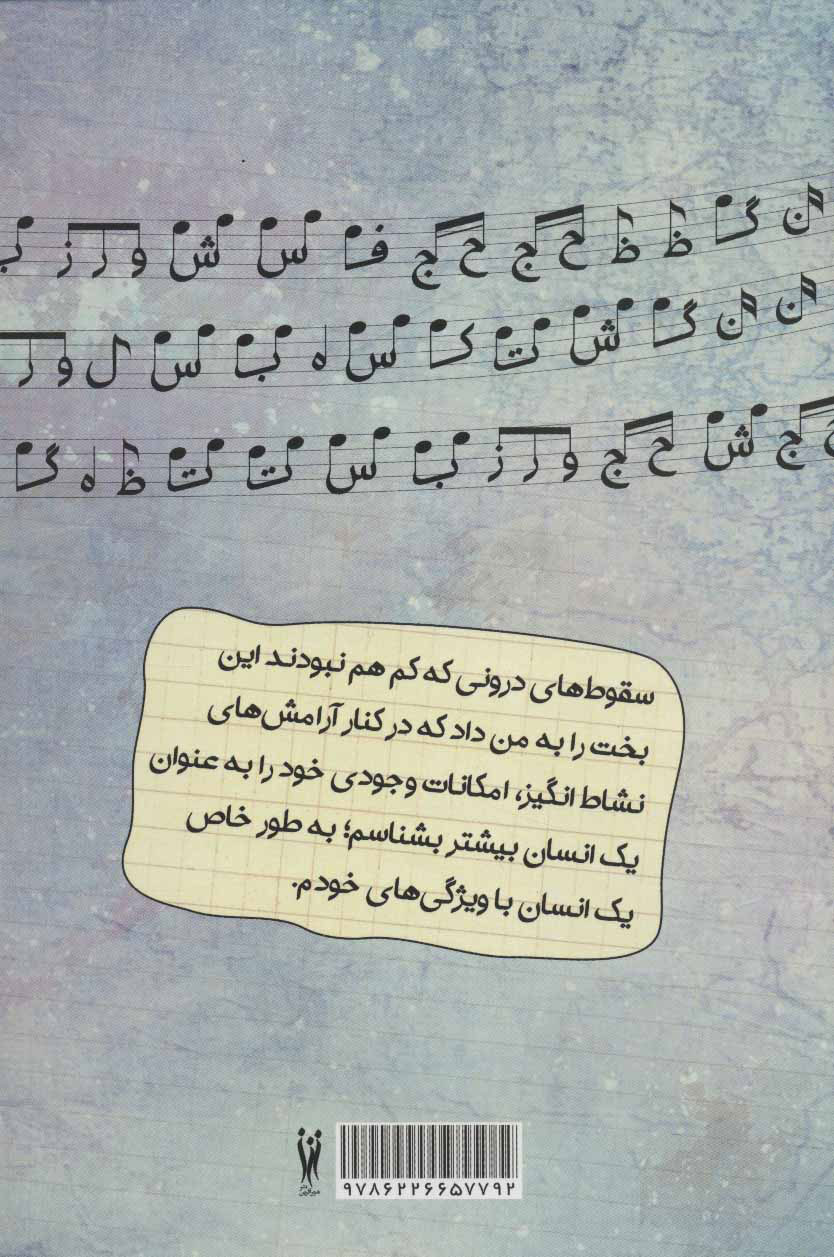 ن گ ظ ظ ح ج ح ج ف س ش و ر ز ب
ن ن گ ش ت ک س ه ب س ل و ر
ج ش ح ج و ر ز ب س ت ت ظ ه گ
سقوط‌های درونی که کم هم نبودند این
بخت را به من داد که در کنار آرامش‌های
نشاط انگیز، امکانات وجودی خود را به عنوان
یک انسان بیشتر بشناسم؛ به طور خاص
یک انسان با ویژگی‌های خودم.
۹۷۸۶۲۲۶۶۵۷۷۹۲